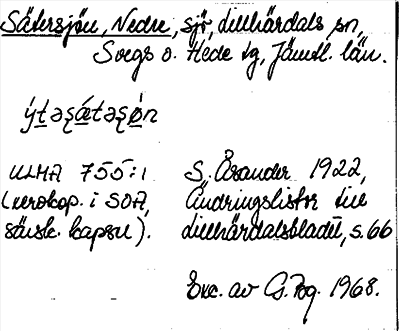 Sätersjön, Nedre, sjö, Lillhärdals sn,
Svegs o. Hede tg, Jämtl. län.
ýtəʂǽtəʂøn
ULMA 755:1 S. Åsander 1922,
(xerokop. i SOA, Ändringslistor till
särsk. kapsel). Lillhärdalsbladet, s. 66
Exc. av G. Pog. 1968.